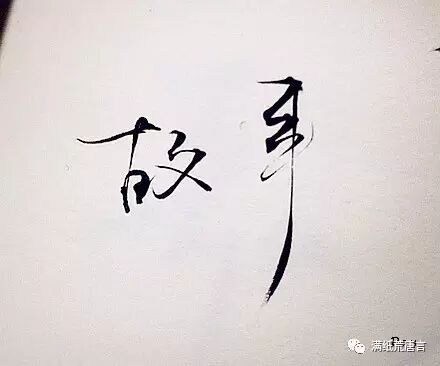 故事
满纸荒唐言